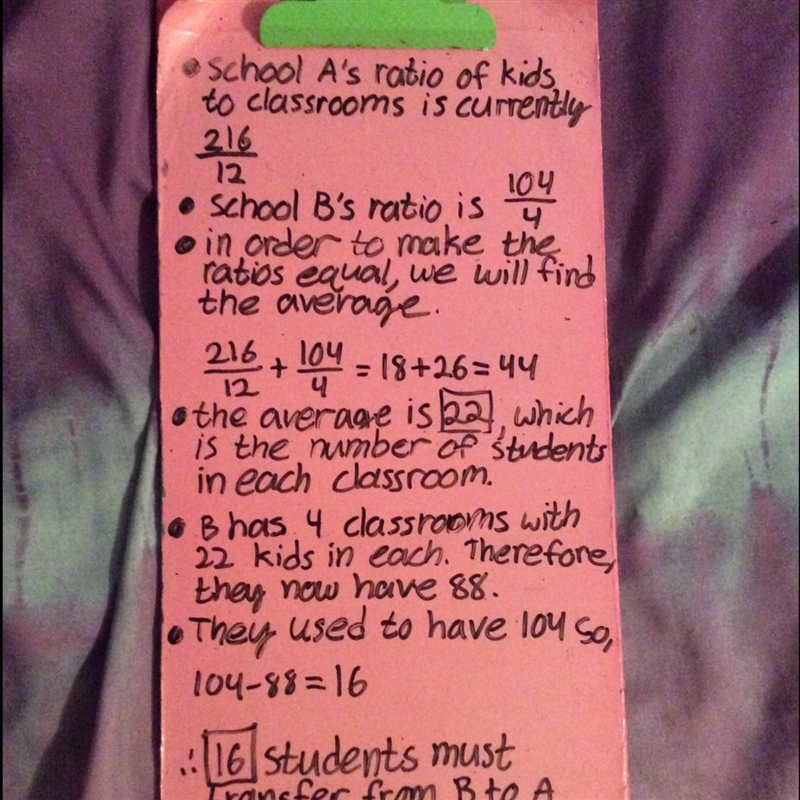 • School A's ratio of kids
to classrooms is currently
216/12
• School B's ratio is 104/4
• in order to make the
ratios equal, we will find
the average.
216/12 + 104/4 = 18+26 = 44
• the average is 22, which
is the number of students
in each classroom.
• B has 4 classrooms with
22 kids in each. Therefore,
they now have 88.
• They used to have 104 so,
104-88=16
∴ 16 students must
transfer from B to A